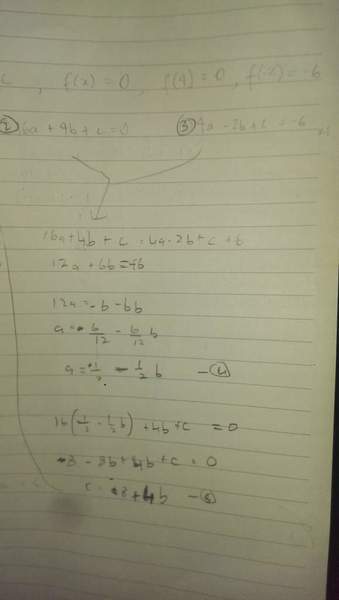 c , f(x) = 0 , f(4) = 0 , f(-2) = -6
② 16a + 4b + c = 0 ③ 4a - 2b + c = -6
16a + 4b + c = 4a - 2b + c + 6
12a + 6b = 6
12a = - 6 - 6b
a = - 6/12 - 6/12 b
a = 1/2 - 1/2 b - ④
16(1/2 - 1/2 b) + 4b + c = 0
8 - 8b + 4b + c = 0
c = 8 + 4b - ⑤